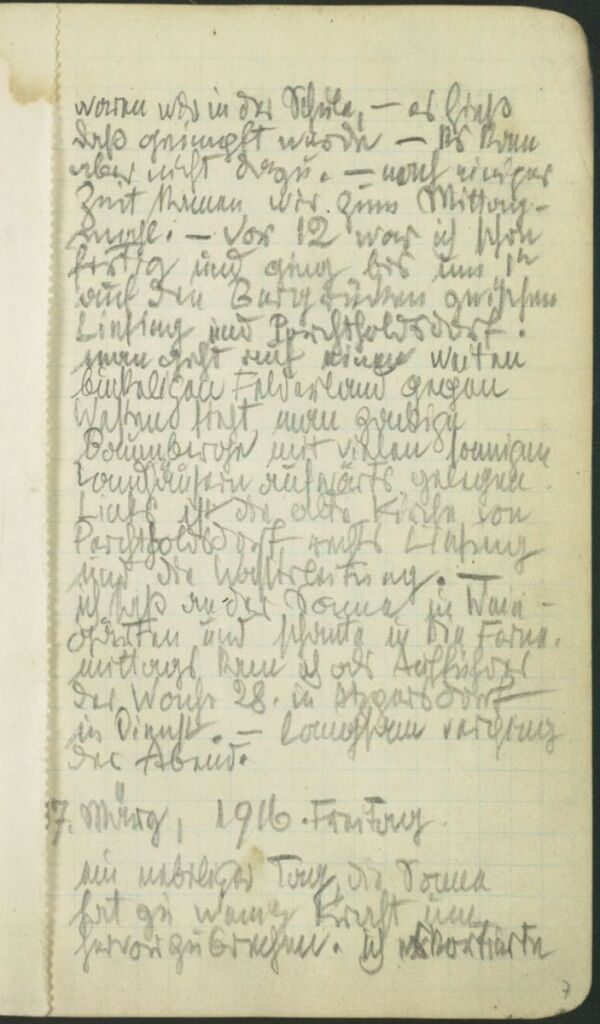 waren wir in der Schule, – es hieß
daß geimpft würde – Es kam
aber nicht dazu. – nach einiger
Zeit kamen wir zum Mittag-
mahl. – Vor 12 war ich schon
fertig und ging bis um 1h
auf den Bergrücken zwischen
Liesing und Perchtholdsdorf.
man geht auf einem weiten
Felderland gegen
Westen sieht man
Baumberge mit vielen sonnigen
Landhäusern aufwärts gelegen
Links ist die alte Kirche von
Perchtholdsdorf, rechts Liesing
und die Wasserleitung. –
ich saß an der Sonne in Wein-
gärten und schaute in die Ferne.
mittags kam ich als Aufführer
der Wache 28. in Atzgersdorf
in Dienst. – langsam verging
der Abend.
17. März, 1916. Freitag.
ein nebeliger Tag, die Sonne
hat zu wenig Kraft um
hervorzubrechen. ich eskortierte
7